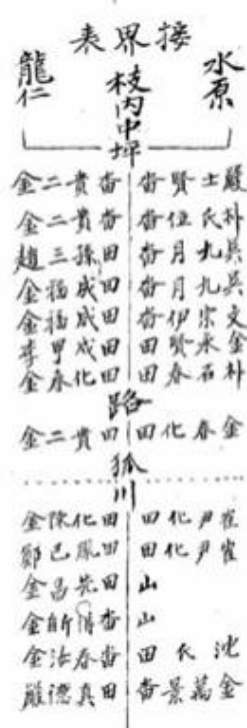 接界表
水原
龍仁
枝内中坪
嚴士賢畓 畓貴二金
朴氏位畓 畓貴二金
吳九月畓 田孫三趙
吳九月畓 田成福金
文宗伊畓 田成福金
金永賢田 田戌甲李
朴石春田 田化春金
路
金春化田 田貴二金
狐川
崔尹化田 田化陳金
崔尹化田 田鳳己鄭
山 田先昌金
山 畓 金
沈 田 畓春法金
金萬景畓 田真德